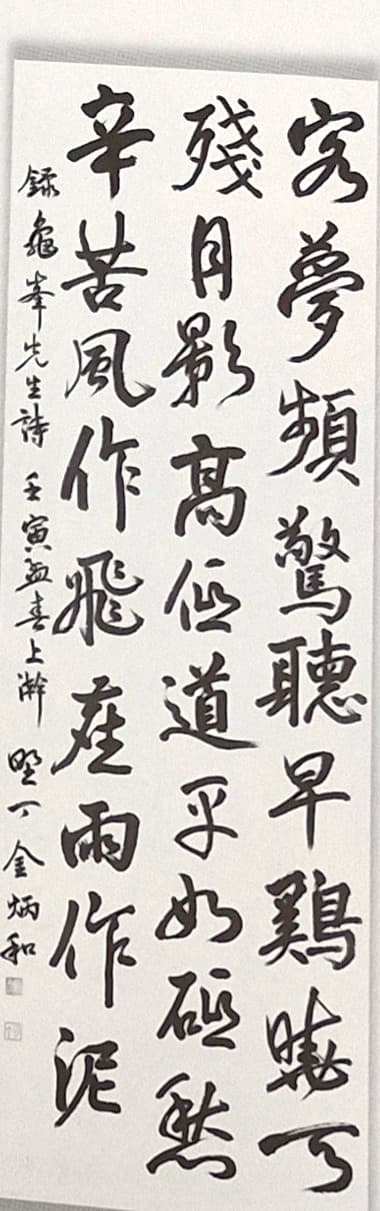 客夢頻驚聽早鷄曉天
殘月影高低道平如砥愁
辛苦風作飛塵雨作泥
錄龜峯先生詩 壬寅孟春上澣 丁 金炳和